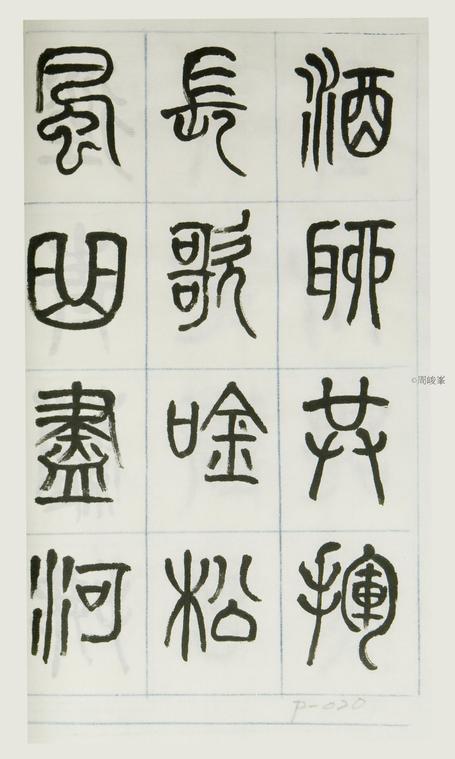 酒聊共揮
長歌唫松
風曲盡河
P-020
©周峻峯